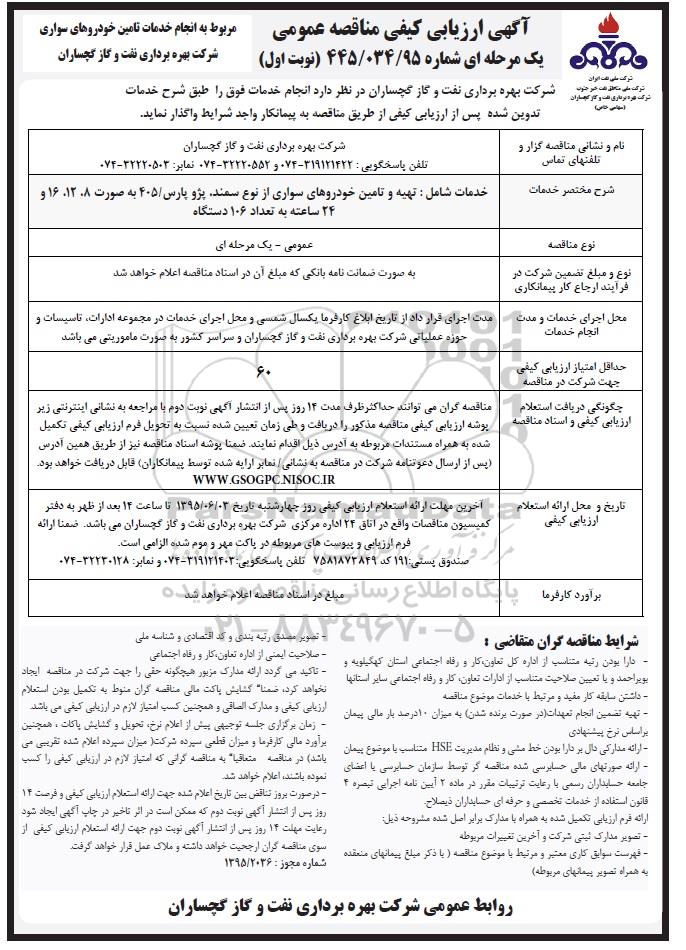 آگهی ارزیابی کیفی مناقصه عمومی
یک مرحله ای شماره ۴۴۵/۰۳۴/۹۵ (نوبت اول)
مربوط به انجام خدمات تامین خودروهای سواری
شرکت بهره برداری نفت و گاز گچساران
شرکت ملی نفت ایران
شرکت ملی مناطق نفت خیز جنوب
شرکت بهره برداری نفت و گاز گچساران
(سهامی خاص)
شرکت بهره برداری نفت و گاز گچساران در نظر دارد انجام خدمات فوق را طبق شرح خدمات
تدوین شده پس از ارزیابی کیفی از طریق مناقصه به پیمانکار واجد شرایط واگذار نماید.
نام و نشانی مناقصه گزار و
تلفنهای تماس
شرکت بهره برداری نفت و گاز گچساران
تلفن پاسخگویی : ۳۱۹۱۲۱۴۲۲-۰۷۴ و ۳۲۲۲۰۵۵۲-۰۷۴ نمابر: ۳۲۲۲۰۵۰۳-۰۷۴
شرح مختصر خدمات
خدمات شامل : تهیه و تامین خودروهای سواری از نوع سمند، پژو پارس/۴۰۵ به صورت ۸، ۱۲، ۱۶ و
۲۴ ساعته به تعداد ۱۰۶ دستگاه
نوع مناقصه
عمومی – یک مرحله ای
نوع و مبلغ تضمین شرکت در
فرآیند ارجاع کار پیمانکاری
به صورت ضمانت نامه بانکی که مبلغ آن در اسناد مناقصه اعلام خواهد شد
محل اجرای خدمات و مدت
انجام خدمات
مدت اجرای قرار داد از تاریخ ابلاغ کارفرما یکسال شمسی و محل اجرای خدمات در مجموعه ادارات، تاسیسات و
حوزه عملیاتی شرکت بهره برداری نفت و گاز گچساران و سراسر کشور به صورت ماموریتی می باشد
حداقل امتیاز ارزیابی کیفی
جهت شرکت در مناقصه
۶۰
چگونگی دریافت استعلام
ارزیابی کیفی و اسناد مناقصه
مناقصه گران می توانند حداکثرظرف مدت ۱۴ روز پس از انتشار آگهی نوبت دوم با مراجعه به نشانی اینترنتی زیر
پوشه ارزیابی کیفی مناقصه مذکور را دریافت و طی زمان تعیین شده نسبت به تحویل فرم ارزیابی کیفی تکمیل
شده به همراه مستندات مربوطه به آدرس ذیل اقدام نمایند. ضمنا پوشه اسناد مناقصه نیز از طریق همین آدرس
(پس از ارسال دعوتنامه شرکت در مناقصه به نشانی/ نمابر ارایه شده توسط پیمانکاران) قابل دریافت خواهد بود.
WWW.GSOGPC.NISOC.IR
تاریخ و محل ارائه استعلام
ارزیابی کیفی
آخرین مهلت ارائه استعلام ارزیابی کیفی روز چهارشنبه تاریخ ۱۳۹۵/۰۶/۰۳ تا ساعت ۱۴ بعد از ظهر به دفتر
کمیسیون مناقصات واقع در اتاق ۲۴ اداره مرکزی شرکت بهره برداری نفت و گاز گچساران می باشد. ضمنا ارائه
فرم ارزیابی و پیوست های مربوطه در پاکت مهر و موم شده الزامی است.
صندوق پستی:۱۹۱ کد ۷۵۸۱۸۷۳۸۴۹ تلفن پاسخگویی:۳۱۹۱۲۱۴۰۳-۰۷۴ و نمابر: ۳۲۲۳۰۱۲۸-۰۷۴
برآورد کارفرما
مبلغ در اسناد مناقصه اعلام خواهد شد
شرایط مناقصه گران متقاضی :
- دارا بودن رتبه متناسب از اداره کل تعاون،کار و رفاه اجتماعی استان کهگیلویه و
بویراحمد و یا تعیین صلاحیت متناسب از ادارات تعاون، کار و رفاه اجتماعی سایر استانها
- داشتن سابقه کار مفید و مرتبط با خدمات موضوع مناقصه
- تهیه تضمین انجام تعهدات(در صورت برنده شدن) به میزان ۱۰درصد بار مالی پیمان
براساس نرخ پیشنهادی
- ارائه مدارکی دال بر دارا بودن خط مشی و نظام مدیریت HSE متناسب با موضوع پیمان
- ارائه صورتهای مالی حسابرسی شده مناقصه گر توسط سازمان حسابرسی یا اعضای
جامعه حسابداران رسمی با رعایت ترتیبات مقرر در ماده ۲ آیین نامه اجرایی تبصره ۴
قانون استفاده از خدمات تخصصی و حرفه ای حسابداران ذیصلاح.
ارائه فرم ارزیابی تکمیل شده به همراه با مدارک برابر اصل شده مشروحه ذیل:
- تصویر مدارک ثبتی شرکت و آخرین تغییرات مربوطه
- فهرست سوابق کاری معتبر و مرتبط با موضوع مناقصه ( با ذکر مبلغ پیمانهای منعقده
به همراه تصویر پیمانهای مربوطه)
- تصویر مصدق رتبه بندی و کد اقتصادی و شناسه ملی
- صلاحیت ایمنی از اداره تعاون،کار و رفاه اجتماعی
- تاکید می گردد ارائه مدارک مزبور هیچگونه حقی را جهت شرکت در مناقصه ایجاد
نخواهد کرد، ضمنا" گشایش پاکت مالی مناقصه گران منوط به تکمیل بودن استعلام
ارزیابی کیفی و مدارک الصاقی و همچنین کسب امتیاز لازم در ارزیابی کیفی می باشد.
- زمان برگزاری جلسه توجیهی پیش از اعلام نرخ، تحویل و گشایش پاکات ، همچنین
برآورد مالی کارفرما و میزان قطعی سپرده شرکت( میزان سپرده اعلام شده تقریبی می
باشد) در مناقصه متعاقبا" به مناقصه گرانی که امتیاز لازم در ارزیابی کیفی را کسب
نموده باشند، اعلام خواهد شد.
- درصورت بروز تناقض بین تاریخ اعلام شده جهت ارائه استعلام ارزیابی کیفی و فرصت ۱۴
روز پس از انتشار آگهی نوبت دوم که ممکن است در اثر تاخیر در چاپ آگهی ایجاد شود
رعایت مهلت ۱۴ روز پس از انتشار آگهی نوبت دوم جهت ارائه استعلام ارزیابی کیفی از
سوی مناقصه گران ارجحیت خواهد داشته و ملاک عمل قرار خواهد گرفت.
شماره مجوز : ۱۳۹۵/۲۰۳۶
روابط عمومی شرکت بهره برداری نفت و گاز گچساران
ParsNamadData
پایگاه اطلاع رسانی مناقصه و مزایده
۰۲۱-۸۸۳۴۹۶۷۰-۵